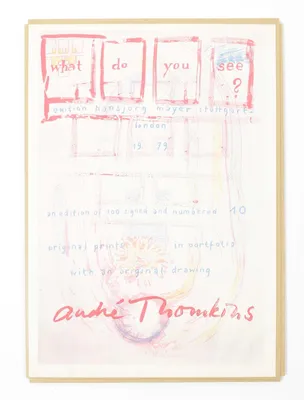 what do you see
?
edition hansjörg mayer stuttgart
london
1973
an edition of 100 signed and numbered 10
original prints in portfolio
with an original drawing
andré Thomkins